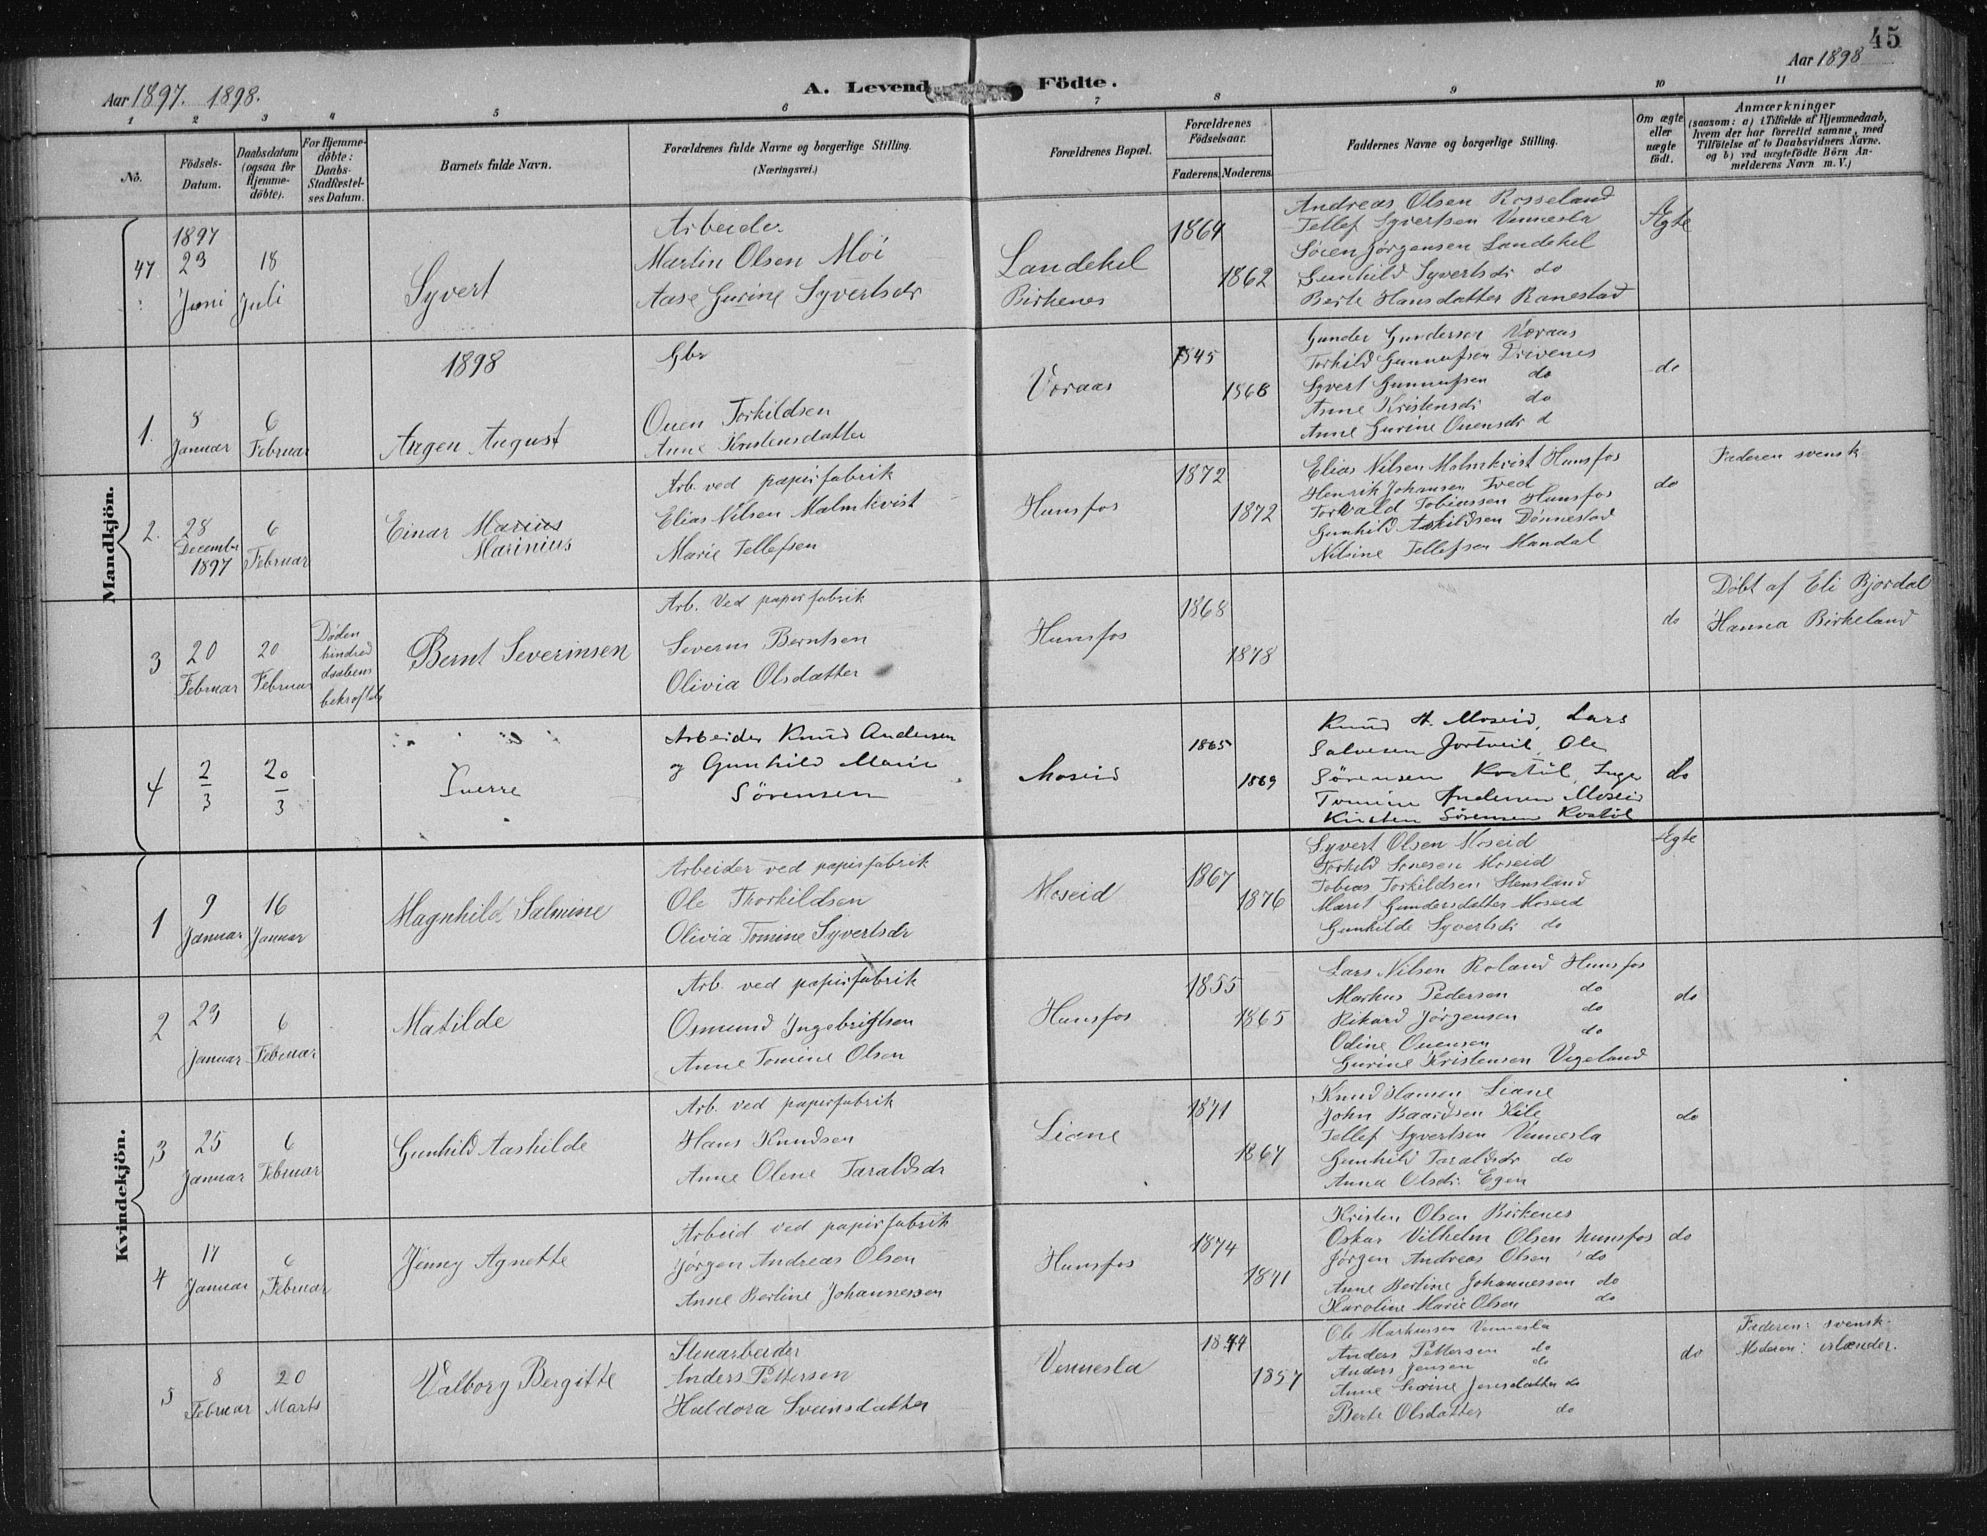 45
Aar 1897. 1898.
A. Levende Födte.
Aar 1898
1 2 3 4 5 6 7 8 9 10 11
No.
Födsels-Datum.
Daabsdatum (ogsaa for Hjemmedöbte).
For Hjemmedöbte: Daabs-Stadfæstelses Datum.
Barnets fulde Navn.
Forældrenes fulde Navne og borgerlige Stilling. (Næringsvei.)
Forældrenes Bopæl.
Forældrenes Födselsaar.
Faderens. Moderens.
Faddernes Navne og borgerlige Stilling.
Om ægte eller uægte födt.
Anmærkninger (saasom: a) i Tilfælde af Hjemmedaab, hvem der har forrettet samme, med Tilföielse af to Daabsvidners Navne, og b) ved uægtefödte Börn Anmelderens Navn m. V.)
Mandkjön.
47
1897
23 Juni
18 Juli
Syvert
Arbeider
Martin Olsen Moi
Aase Gurine Syvertsdr
Landekil
Birkenes
1864
1862
Andreas Olsen Rosseland
Tellef Syvertsen Vennesla
Sören Jörgensen Landekil
Gunhild Syvertsdr do
Berte Hansdatter Ranestad
Ægte
1898
1.
8 Januar
6 Februar
Aagen August
Gbr
Ouen Torkildsen
Anne Kristensdatter
Voraas
1845
1868
Gunder Gundersen Voraas
Torkild Gunnufsen Drivenes
Syvert Gunnufsen do
Anne Kristensdr do
Anne Gurine Ouensdr d
do
2.
28 December 1897
6 Februar
Einar Marius
Marinius
Arb. ved papirfabrik
Elias Nilsen Malmkvist
Marie Tellefsen
Hunsfos
1872
1872
Elias Nilsen Malmkvist Hunsfos
Henrik Johansen Tved
Torvald Tobiassen Hunsfos
Gunhild Askildsen Dönnestad
Nilsine Tellefsen Mandal
do
Faderen svensk
3
20 Februar
20 Februar
Döden hindred daabens bekræftels
Bernt Severinsen
Arb. Ved papirfabrik
Severin Berntsen
Olivia Olsdatter
Hunsfos
1868
1878
do
Döbt af Eli Bjordal
Hanna Birkeland
4
2/3
20/3
Sverre
Arbeider Knud Andersen
og Gunhild Marie
Sörensen
Moseid
1865
1869
Knud A. Moseid, Lars
Salvesen Jortveit, Ole
Sörensen Kostöl, Inge
Tomine Andersen Moseid
Kirsten Sörensen Kostöl
do
Kvindekjön.
1
9 Januar
16 Januar
Magnhild Salmine
Arbeider ved papirfabrik
Ole Thorkildsen
Olivia Tomine Syvertsdr
Moseid
1867
1876
Syvert Olsen Moseid
Torkild Moseid
Tobias Torkildsen Stensland
Marit Gundersdatter Moseid
Gunhilde Syvertsdr do
Ægte
2
23 Januar
6 Februar
Matilde
Arb. ved papirfabrik
Osmund Ingebrigtsen
Anne Tomine Olsen
Hunsfos
1855
1865
Lars Nilsen Roland Hunsfos
Markus Pedersen do
Rikard Jörgensen do
Odine Ouensen do
Gurine Kristensen Vigeland
do
3
25 Januar
6 Februar
Gunhild Aashilde
Arb. ved papirfabrik
Hans Knudsen
Anne Olene Taraldsdr
Liane
1871
1867
Knud Hansen Liane
John Baardsen Kile
Tellef Syvertsen Vennesla
Gunhild Taraldsdr do
Anna Olsdr. Egen
do
4
17 Januar
6 Februar
Jenny Agnette
Arbeid ved papirfabrik
Jörgen Andreas Olsen
Anne Bertine Johannessen
Hunsfos
1874
1871
Kristen Olsen Birkenes
Oskar Vilhelm Olsen Hunsfos
Jörgen Andreas Olsen do
Anne Bertine Johannessen do
Karoline Marie Olsen do
do
5
8 Februar
20 Marts
Valborg Bergitte
Stenarbeider
Anders Pettersen
Haldora Svensdatter
Vennesla
1844
1857
Ole Markussen Vennesla
Anders Pettersen do
Anders Jensen do
Anne Jensdatter do
Berte Olsdatter do
do
Faderen: svensk.
Moderen: islænder.